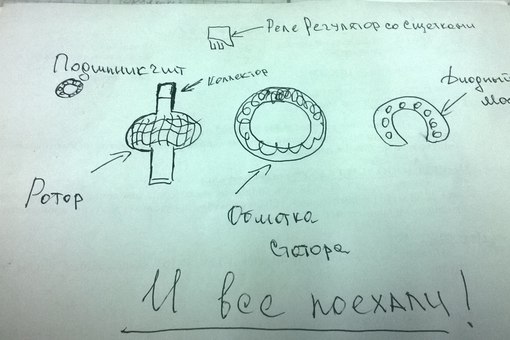 Реле Регулятор со щетками
Подшипник 2 шт
коллектор
Диодный
мос
Ротор
Обмотка
Статора
И все поехали!